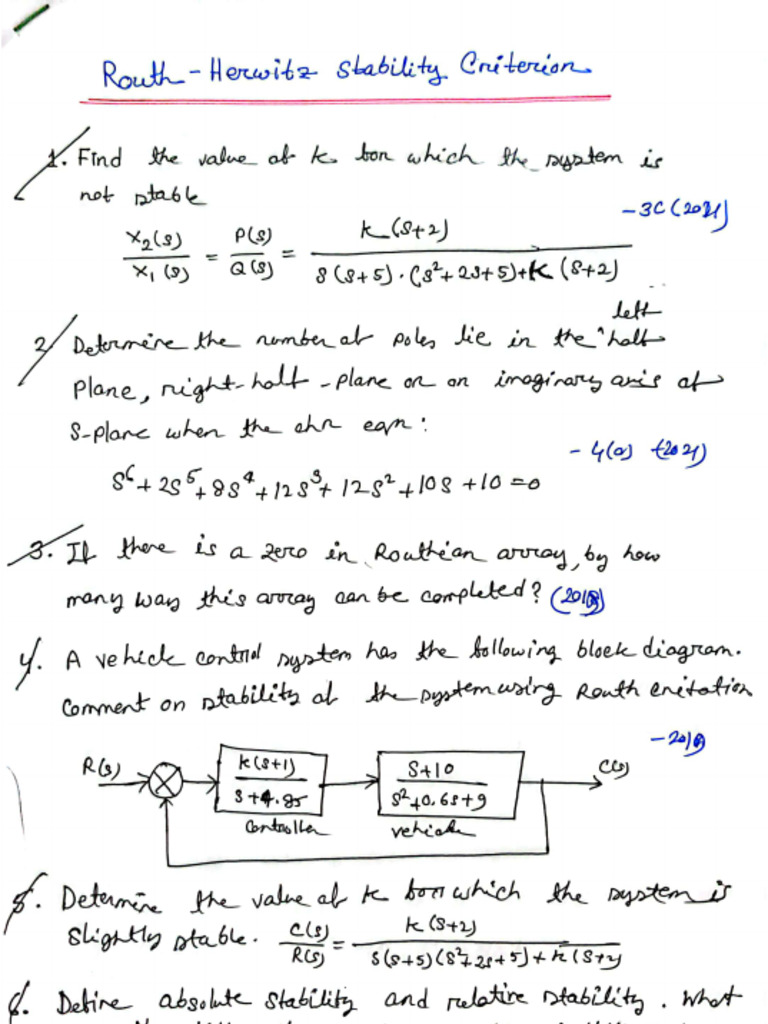 Routh-Herwitz Stability Criterion
1. Find the value of k for which the system is
not stable
-3C (2021)
X₂(s)/X₁(s) = P(s)/Q(s) = k(s+2) / s(s+5).(s²+2s+5)+k(s+2)
left
2 Determine the number of poles lie in the ^ half
plane, right-half-plane or on imaginary axis of
s-plane when the chr eqn:
-4(a) (2021)
s⁶+2s⁵+8s⁴+12s³+12s²+10s+10=0
3. If there is a zero in Routhian array, by how
many way this array can be completed?
4. A vehicle control system has the following block diagram.
Comment on stability of the system using Routh critation
R(s)
k(s+1) / s+4.85
s+10 / s²+0.6s+9
C(s)
Controller
vehicle
5. Determine the value of k for which the system is
slightly stable. C(s)/R(s) = k(s+2) / s(s+5)(s²+2s+5)+k(s+2)
6. Define absolute stability and relative stability. What